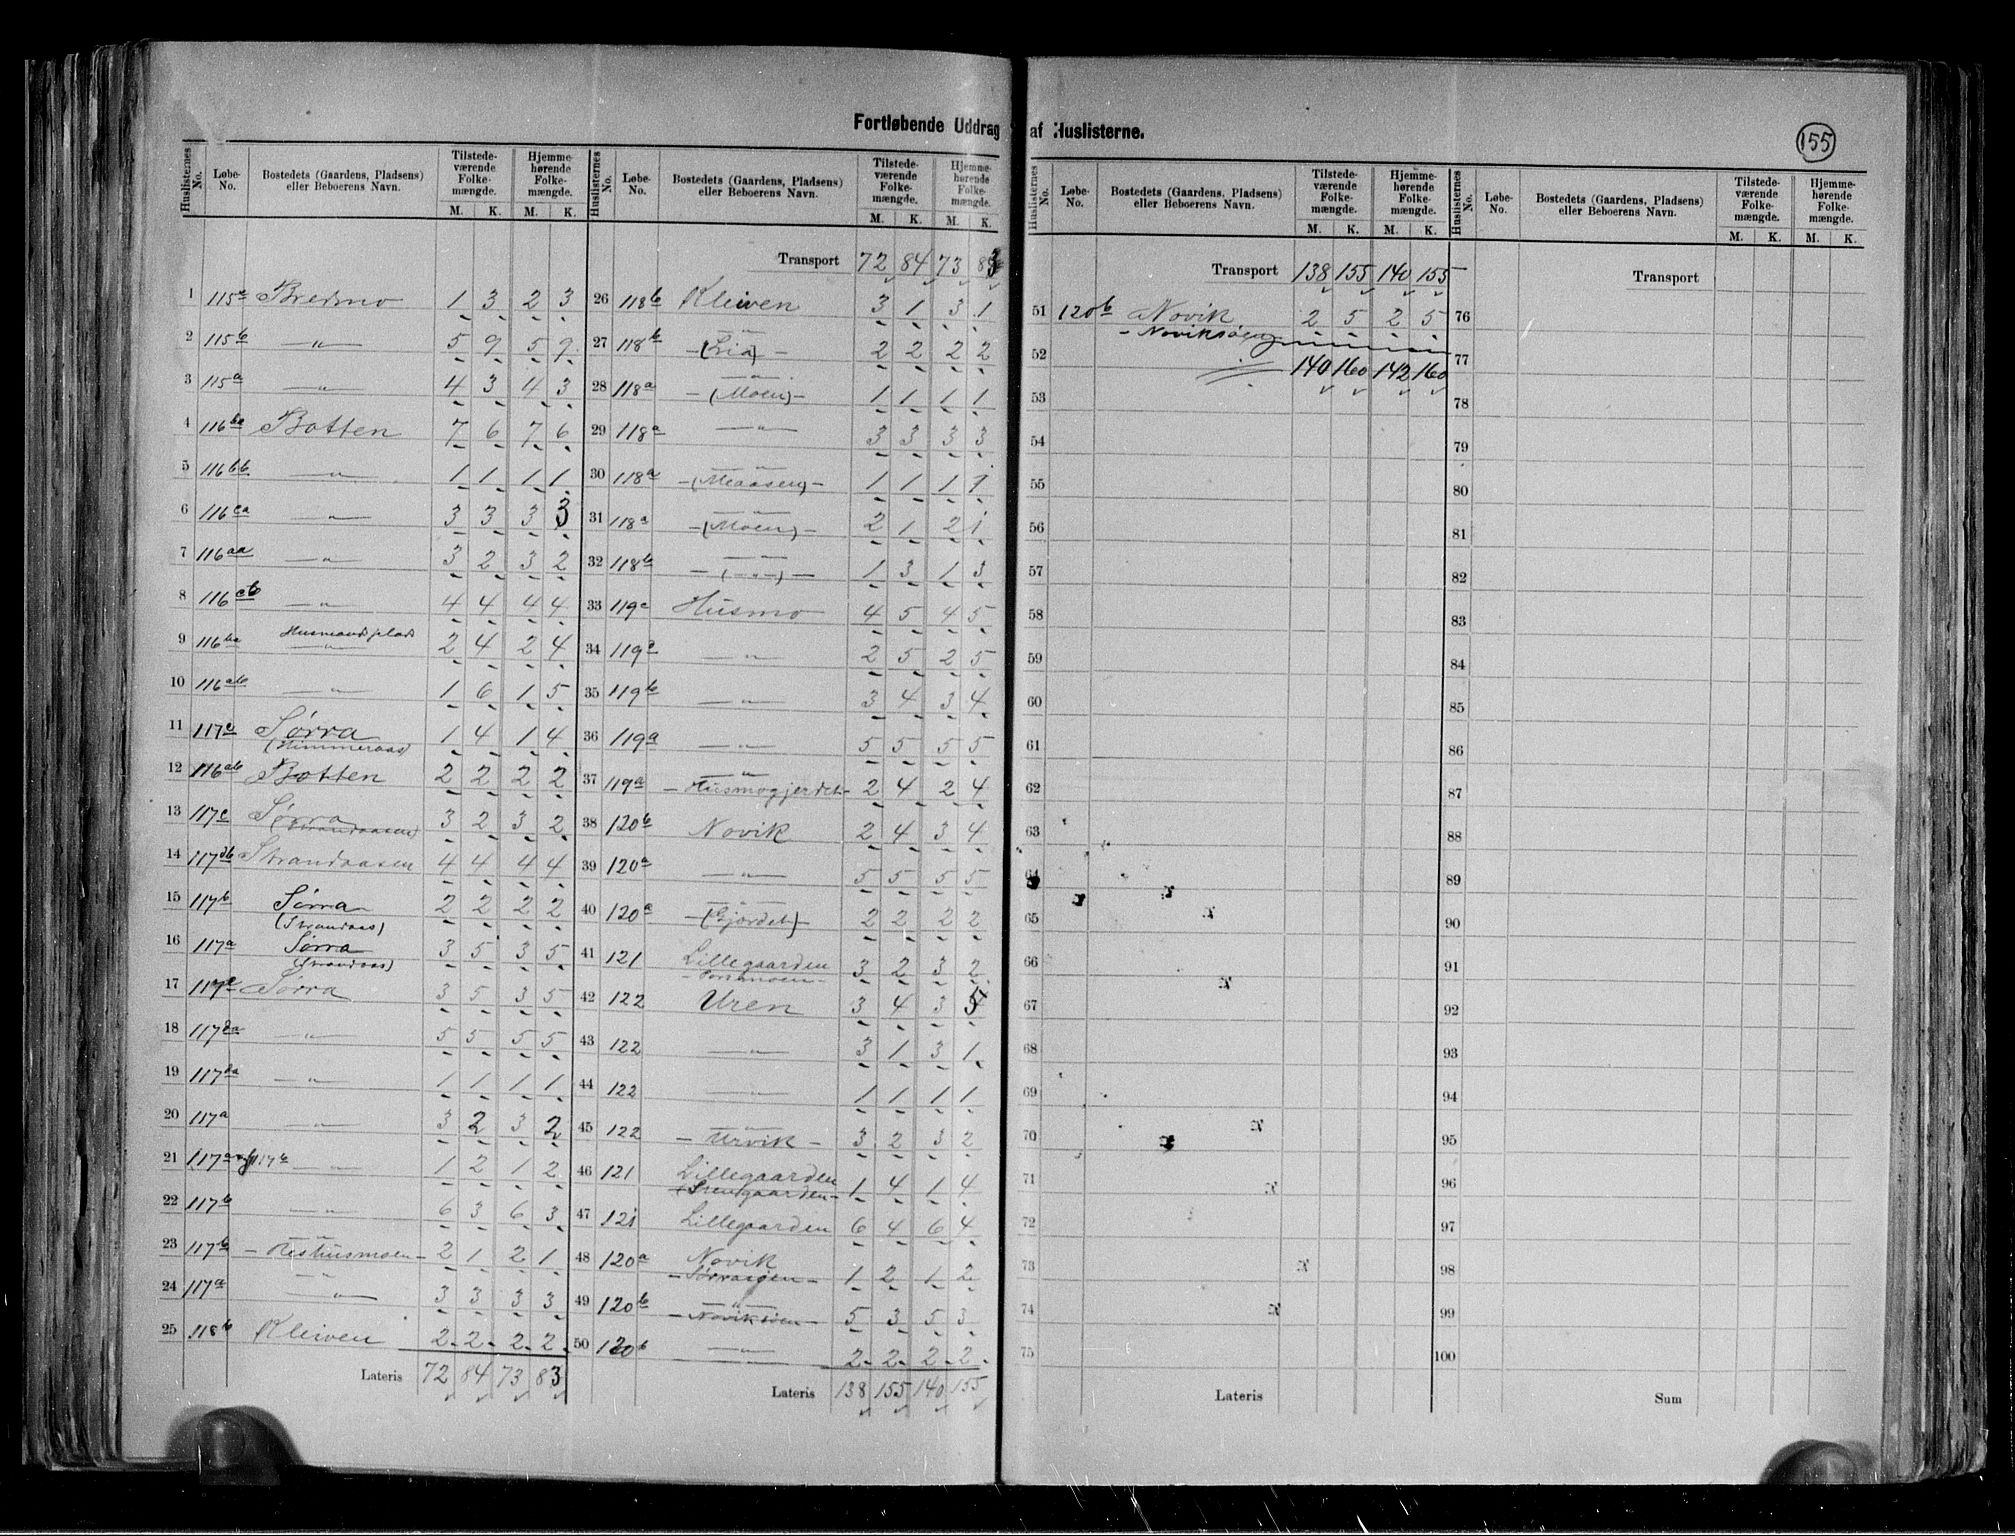 Fortløbende Uddrag af Huslisterne.
155
Huslisternes No. Løbe-No. Bostedets (Gaardens, Pladsens) eller Beboerens Navn. Tilstedeværende Folkemængde. M. K. Hjemmehørende Folkemængde. M. K.
1 115c Bredmo 1 3 2 3
2 115b —„— 5 9 5 9
3 115a —„— 4 3 4 3
4 116ba Botten 7 6 7 6
5 116bb —„— 1 1 1 1
6 116ca —„— 3 3 3 3
7 116aa —„— 3 2 3 2
8 116cb —„— 4 4 4 4
9 116ba Husmandsplads —„— 2 4 2 4
10 116ab —„— 1 6 1 5
11 117c Sørra 1 4 1 4
(Himmeraas)
12 116ab Botten 2 2 2 2
13 117c Sørra 3 2 3 2
(Strandaasen)
14 117db Strandaasen 4 4 4 4
15 117b Sørra 2 2 2 2
(Strandaas)
16 117a Sørra 3 5 3 5
(Strandaas)
17 117c Sørra 3 5 3 5
18 117da —„— 5 5 5 5
19 117da —„— 1 1 1 1
20 117a —„— 3 2 3 2
21 117a og 117b —„— 1 2 1 2
22 117b —„— 6 3 6 3
23 117b —„— 2 1 2 1
24 117a —„— 3 3 3 3
25 118b Kleiven 2 2 2 2
Lateris 72 84 73 83
Huslisternes No. Løbe-No. Bostedets (Gaardens, Pladsens) eller Beboerens Navn. Tilstedeværende Folkemængde. M. K. Hjemmehørende Folkemængde. M. K.
Transport 72 84 73 83
26 118b Kleiven 3 1 3 1
27 118b —„— (Lia) 2 2 2 2
28 118a —„— (Moen) 1 1 1 1
29 118a —„— 3 3 3 3
30 118a —„— (Meaasen) 1 1 1 1
31 118a —„— (Moen) 2 1 2 1
32 118b —„— (—„—) 1 3 1 3
33 119c Husmo 4 5 4 5
34 119c —„— 2 5 2 5
35 119b —„— 3 4 3 4
36 119a —„— 5 5 5 5
37 119a —„— Husmogjerdet 2 4 2 4
38 120b Novik 2 4 3 4
39 120a —„— 5 5 5 5
40 120a —„— (Gjærdet) 2 2 2 2
41 121 Lillegaarden 3 2 3 2
42 122 Uren 3 4 3 5
43 122 —„— 3 1 3 1
44 122 —„— 1 1 1 1
45 122 —„— Urvik 3 2 3 2
46 121 Lillegaarden 1 4 1 4
47 121 Lillegaarden 6 4 6 4
48 120a Novik 1 2 1 2
49 120b —„— Noviksøen 5 3 5 3
50 120b —„— 2 2 2 2
Lateris 138 155 140 155
Huslisternes No. Løbe-No. Bostedets (Gaardens, Pladsens) eller Beboerens Navn. Tilstedeværende Folkemængde. M. K. Hjemmehørende Folkemængde. M. K.
Transport 138 155 140 155
51 120b Novik 2 5 2 5
- Noviksøen
52 140 160 142 160
53
54
55
56
57
58
59
60
61
62
63
64
65
66
67
68
69
70
71
72
73
74
75
Lateris
Huslisternes No. Løbe-No. Bostedets (Gaardens, Pladsens) eller Beboerens Navn. Tilstedeværende Folkemængde. M. K. Hjemmehørende Folkemængde. M. K.
Transport
76
77
78
79
80
81
82
83
84
85
86
87
88
89
90
91
92
93
94
95
96
97
98
99
100
Sum